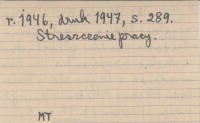 r. 1946, druk 1947, s. 289.
Streszczenie pracy.
MT